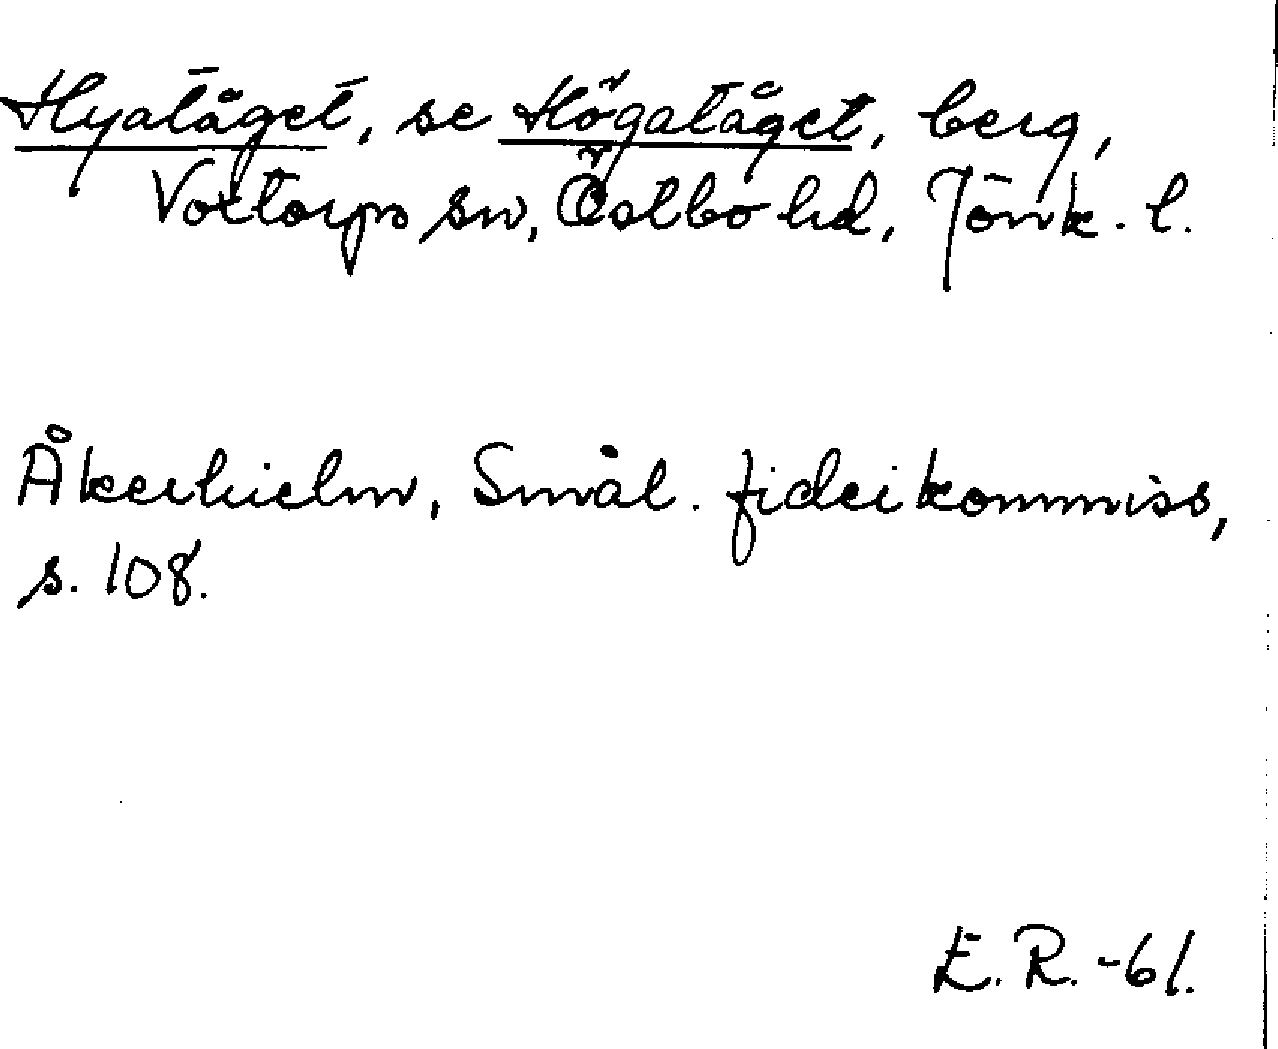 Hyatåget, se Högatåget, berg,
Voxtorps sn, Östbo hd, Jönk. l.
Åkerhielm, Smål. fideikommiss,
s. 108.
E.R.-61.